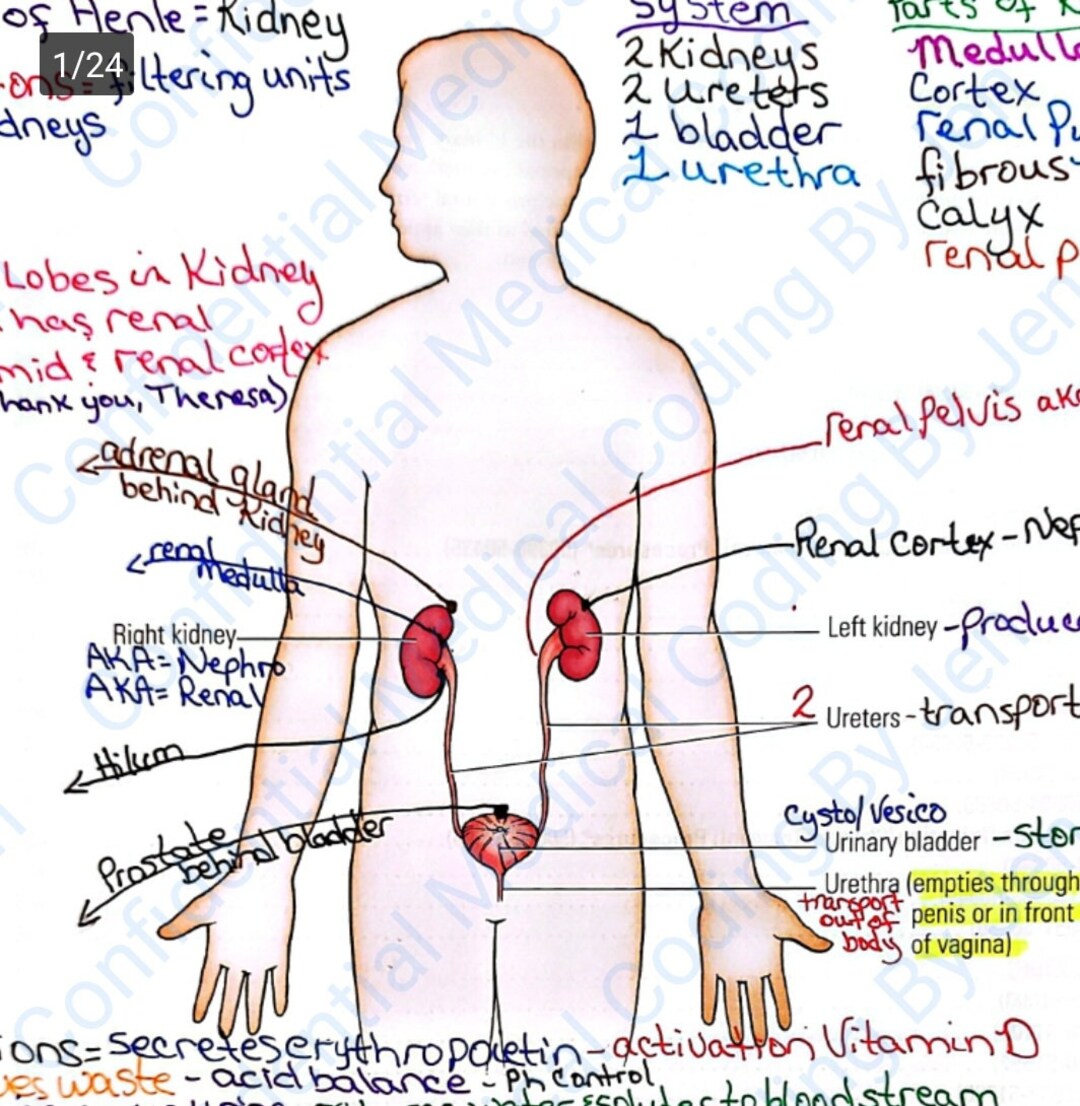 of Henle = Kidney
1/24
ons = filtering units
dneys
System
2 Kidneys
2 Ureters
1 bladder
1 urethra
Parts of K
Medulla
Cortex
renal Py
fibrous
Calyx
renal p
Lobes in Kidney
has renal
mid & renal cortex
hank you, Theresa)
adrenal gland
behind Kidney
renal
Medulla
Right kidney
AKA = Nephro
AKA = Renal
Hilum
Prostate
behind bladder
renal Pelvis aka
Renal Cortex - Nep
Left kidney - produce
2 Ureters - transport
Cysto/Vesico
Urinary bladder - stor
Urethra (empties through
penis or in front
of vagina)
transport
out of
body
ions = Secretes erythropoietin - activation Vitamin D
ves waste - acid balance - Ph Control
to bloodstream
Confidential Medical Coding By Jen